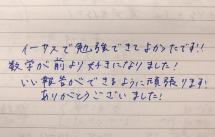 イーサスで勉強できてよかったです!!
数学が前より好きになりました!
いい報告ができるように頑張ります!
ありがとうございました!